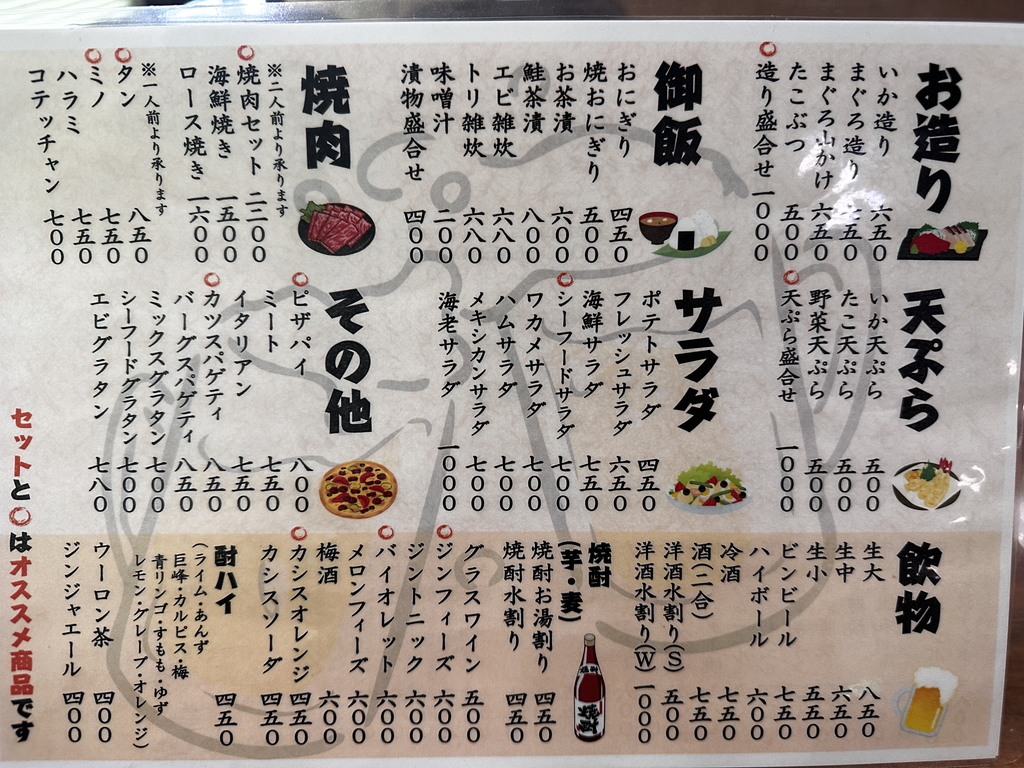 お造り
いか造り 六五〇
まぐろ造り 七五〇
まぐろ山かけ 六五〇
たこぶつ 五〇〇
〇造り盛合せ 一〇〇〇
御飯
おにぎり 四五〇
焼おにぎり 五〇〇
お茶漬 六〇〇
鮭茶漬 八〇〇
エビ雑炊 六八〇
トリ雑炊 六八〇
味噌汁 二〇〇
漬物盛合せ 四〇〇
焼肉
※二人前より承ります
〇焼肉セット 二二〇〇
海鮮焼き 一五〇〇
ロース焼き 一六〇〇
※一人前より承ります
〇タン 八五〇
〇ミノ 七五〇
ハラミ 七五〇
コテッチャン 七〇〇
天ぷら
いか天ぷら 五〇〇
たこ天ぷら 五〇〇
野菜天ぷら 五〇〇
〇天ぷら盛合せ 一〇〇〇
サラダ
ポテトサラダ 四五〇
フレッシュサラダ 六五〇
海鮮サラダ 七五〇
〇シーフードサラダ 七〇〇
ワカメサラダ 七〇〇
ハムサラダ 七〇〇
メキシカンサラダ 七〇〇
海老サラダ 一〇〇〇
その他
〇ピザパイ 八〇〇
ミート 七五〇
イタリアン 七五〇
〇カツスパゲティ 八五〇
バーグスパゲティ 八五〇
ミックスグラタン 七〇〇
シーフードグラタン 七〇〇
エビグラタン 七八〇
飲物
生大 八五〇
生中 六五〇
生小 五五〇
ビンビール 七五〇
ハイボール 六〇〇
冷酒 七五〇
酒(二合) 七五〇
洋酒水割り(S) 五〇〇
洋酒水割り(W) 一〇〇〇
焼酎
(芋・麦)
焼酎
焼酎お湯割り 四五〇
焼酎水割り 四五〇
グラスワイン 五〇〇
〇ジンフィーズ 六〇〇
ジントニック 六〇〇
〇バイオレット 六〇〇
メロンフィーズ 六〇〇
梅酒 六〇〇
〇カシスオレンジ 四五〇
カシスソーダ 四五〇
酎ハイ 四五〇
(ライム・あんず
巨峰・カルピス・梅
青リンゴ・すもも・ゆず
レモン・グレープ・オレンジ)
ウーロン茶 四〇〇
ジンジャエール 四〇〇
セットと〇はオススメ商品です